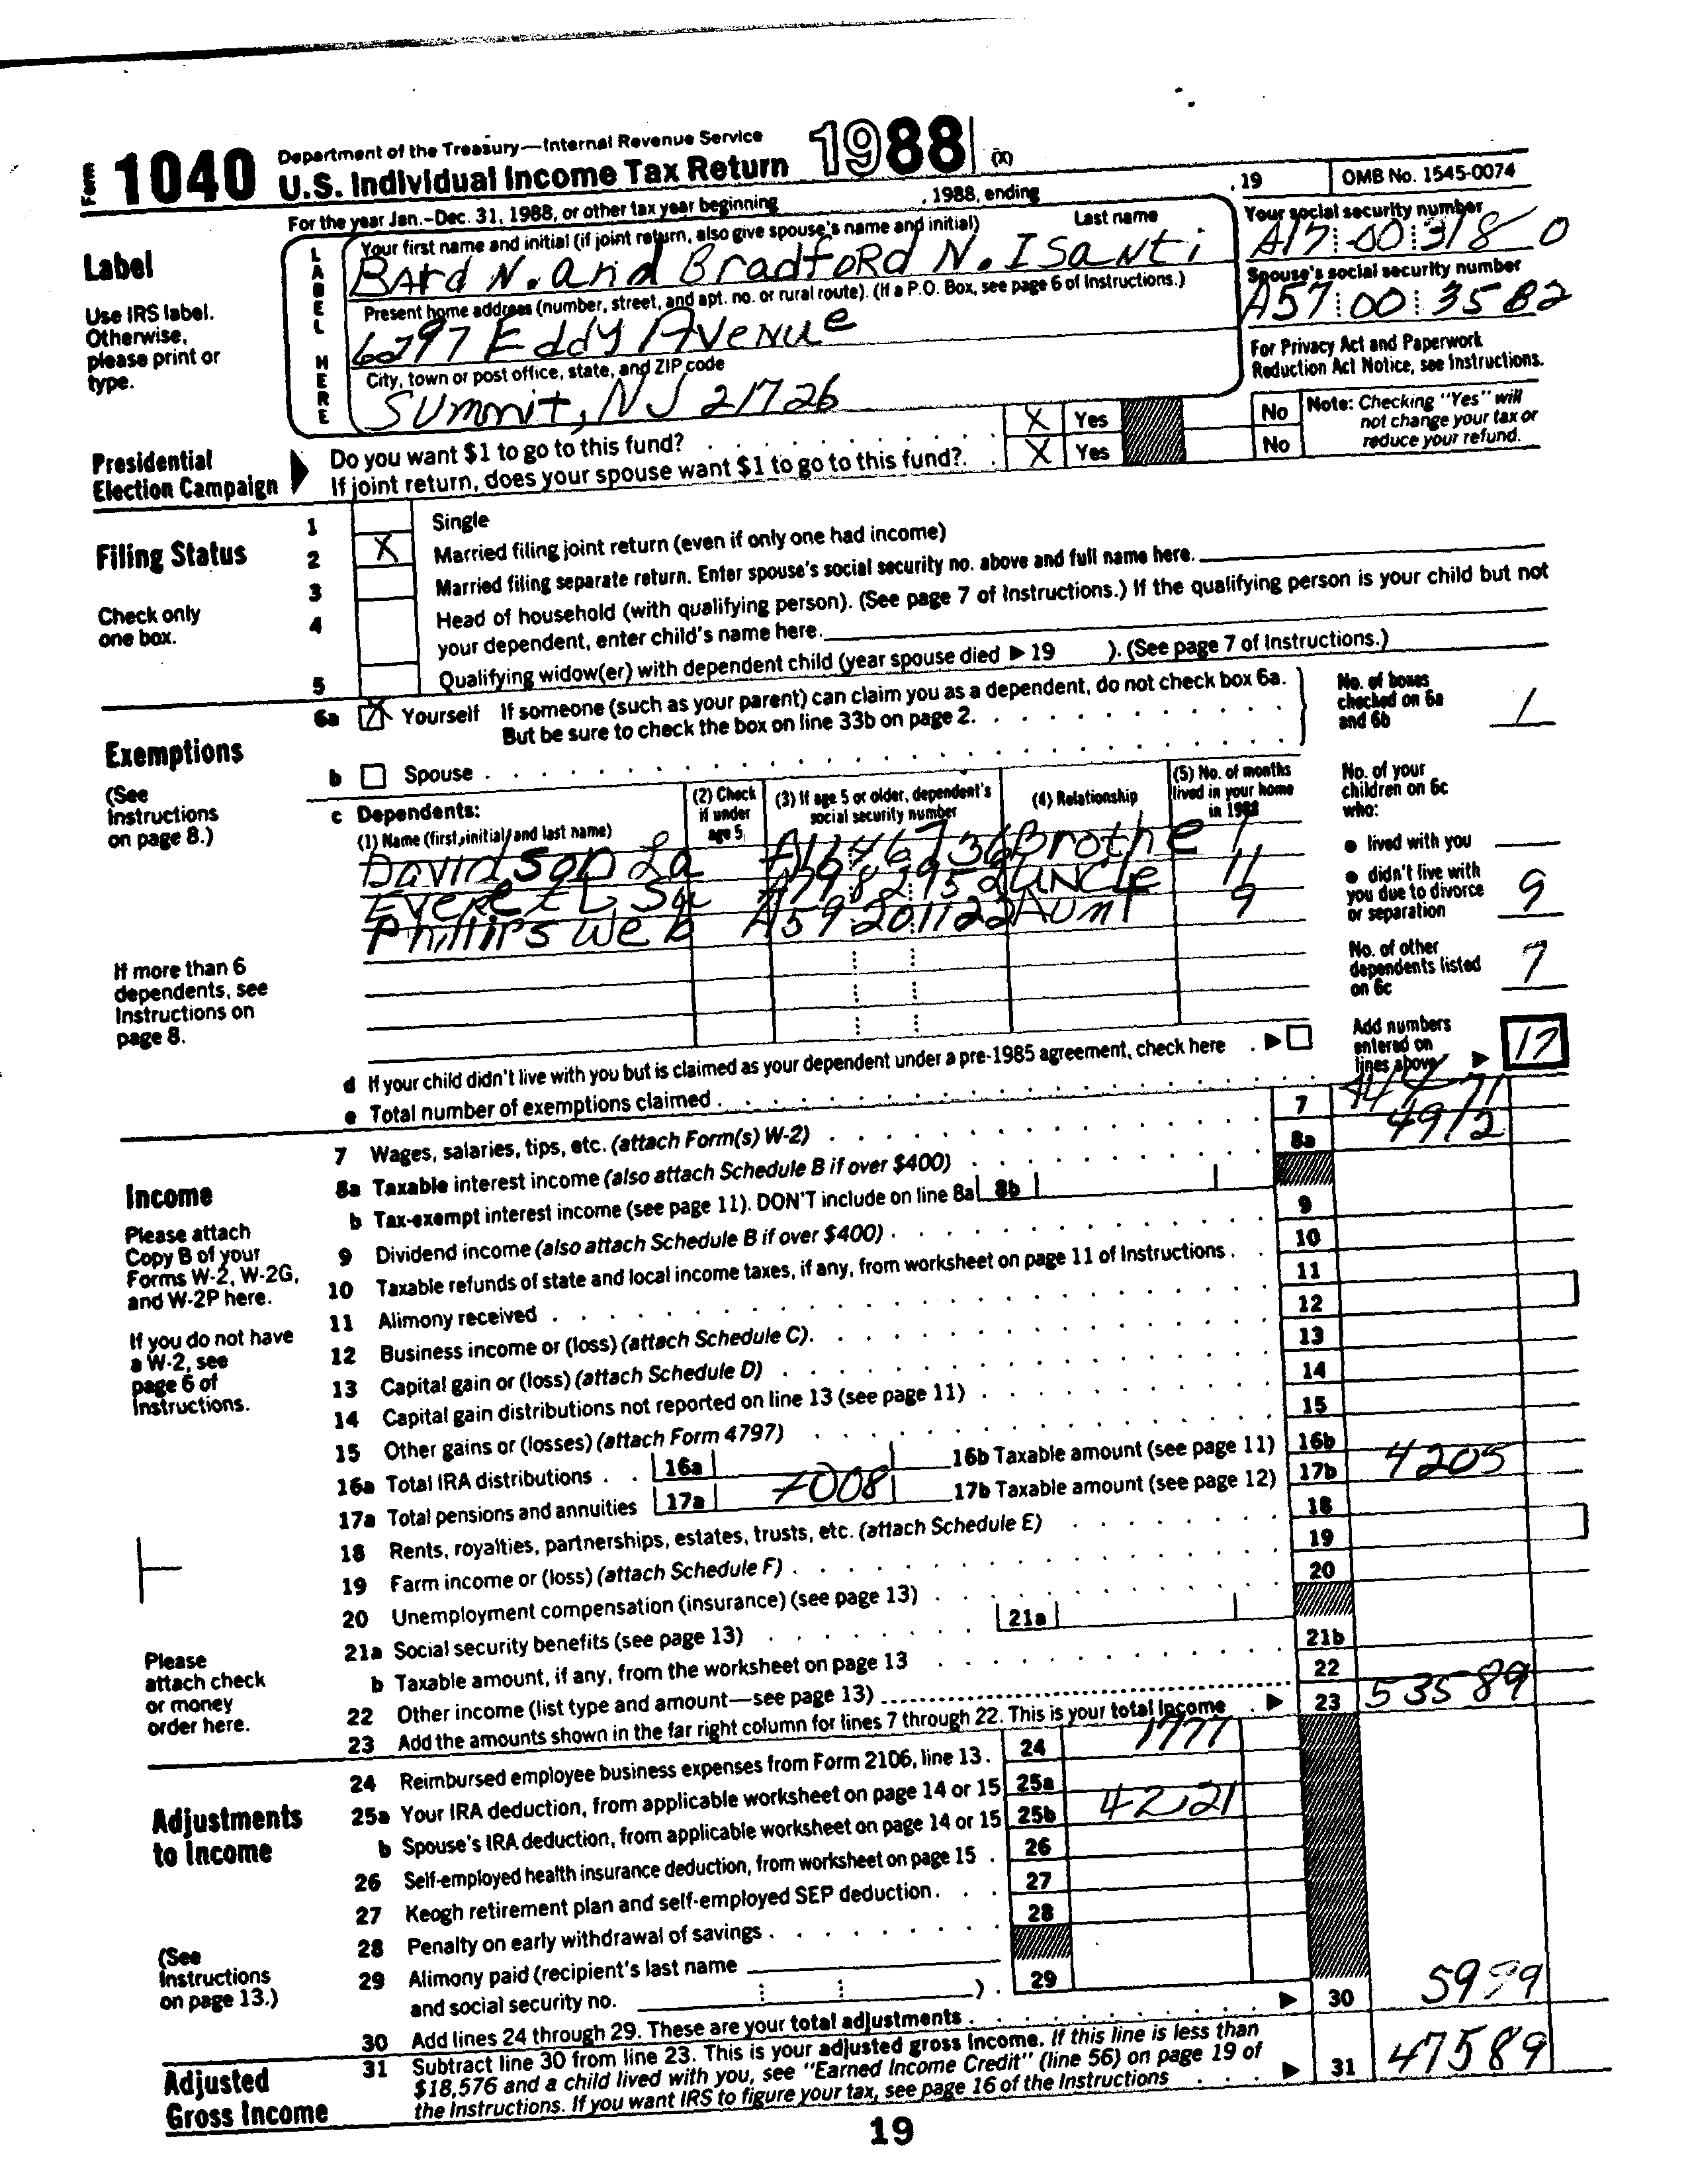 Form 1040 Department of the Treasury—Internal Revenue Service
U.S. Individual Income Tax Return 1988 (X)
For the year Jan.–Dec. 31, 1988, or other tax year beginning , 1988, ending , 19 OMB No. 1545-0074
Label
Use IRS label. Otherwise, please print or type.
LABEL HERE
Your first name and initial (if joint return, also give spouse's name and initial) Last name
BArd N. and BradfoRd N. ISaNti
Your social security number
A17 00 3180
Present home address (number, street, and apt. no. or rural route). (If a P.O. Box, see page 6 of Instructions.)
6797 Eddy AVeNUe
Spouse's social security number
A57 00 3582
City, town or post office, state, and ZIP code
SUmmit, NJ 21726
For Privacy Act and Paperwork
Reduction Act Notice, see Instructions.
Presidential Election Campaign
Do you want $1 to go to this fund? X Yes No
If joint return, does your spouse want $1 to go to this fund? X Yes No
Note: Checking "Yes" will not change your tax or reduce your refund.
Filing Status
Check only one box.
1 Single
2 X Married filing joint return (even if only one had income)
3 Married filing separate return. Enter spouse's social security no. above and full name here.
4 Head of household (with qualifying person). (See page 7 of Instructions.) If the qualifying person is your child but not
your dependent, enter child's name here.
5 Qualifying widow(er) with dependent child (year spouse died ▶ 19 ). (See page 7 of Instructions.)
Exemptions
(See Instructions on page 8.)
6a X Yourself If someone (such as your parent) can claim you as a dependent, do not check box 6a.
But be sure to check the box on line 33b on page 2.
b Spouse
No. of boxes checked on 6a and 6b 1
c Dependents:
(1) Name (first, initial, and last name) (2) Check if under age 5 (3) If age 5 or older, dependent's social security number (4) Relationship (5) No. of months lived in your home in 1988
Davidson La A16 46 736 Brothe 1
Everett Su A79 82 952 UNCLE 11
Phillips Web A59 20 1122 AUnt 9
No. of your children on 6c who:
● lived with you
● didn't live with you due to divorce or separation 9
No. of other dependents listed on 6c 7
If more than 6 dependents, see Instructions on page 8.
d If your child didn't live with you but is claimed as your dependent under a pre-1985 agreement, check here ▶
e Total number of exemptions claimed
Add numbers entered on lines above ▶ 17
Income
Please attach Copy B of your Forms W-2, W-2G, and W-2P here.
If you do not have a W-2, see page 6 of Instructions.
Please attach check or money order here.
7 Wages, salaries, tips, etc. (attach Form(s) W-2) 7 44471
8a Taxable interest income (also attach Schedule B if over $400) 8a 4912
b Tax-exempt interest income (see page 11). DON'T include on line 8a 8b
9 Dividend income (also attach Schedule B if over $400) 9
10 Taxable refunds of state and local income taxes, if any, from worksheet on page 11 of Instructions 10
11 Alimony received 11
12 Business income or (loss) (attach Schedule C) 12
13 Capital gain or (loss) (attach Schedule D) 13
14 Capital gain distributions not reported on line 13 (see page 11) 14
15 Other gains or (losses) (attach Form 4797) 15
16a Total IRA distributions 16a 16b Taxable amount (see page 11) 16b
17a Total pensions and annuities 17a 7008 17b Taxable amount (see page 12) 17b 4205
18 Rents, royalties, partnerships, estates, trusts, etc. (attach Schedule E) 18
19 Farm income or (loss) (attach Schedule F) 19
20 Unemployment compensation (insurance) (see page 13) 20
21a Social security benefits (see page 13) 21a
b Taxable amount, if any, from the worksheet on page 13 21b
22 Other income (list type and amount—see page 13) 22
23 Add the amounts shown in the far right column for lines 7 through 22. This is your total income ▶ 23 53589
Adjustments to Income
(See Instructions on page 13.)
24 Reimbursed employee business expenses from Form 2106, line 13. 24 1777
25a Your IRA deduction, from applicable worksheet on page 14 or 15 25a
b Spouse's IRA deduction, from applicable worksheet on page 14 or 15 25b 4221
26 Self-employed health insurance deduction, from worksheet on page 15 26
27 Keogh retirement plan and self-employed SEP deduction 27
28 Penalty on early withdrawal of savings 28
29 Alimony paid (recipient's last name
and social security no. ) 29
30 Add lines 24 through 29. These are your total adjustments ▶ 30 5999
Adjusted Gross Income
31 Subtract line 30 from line 23. This is your adjusted gross income. If this line is less than
$18,576 and a child lived with you, see "Earned Income Credit" (line 56) on page 19 of
the Instructions. If you want IRS to figure your tax, see page 16 of the Instructions ▶ 31 47589
19